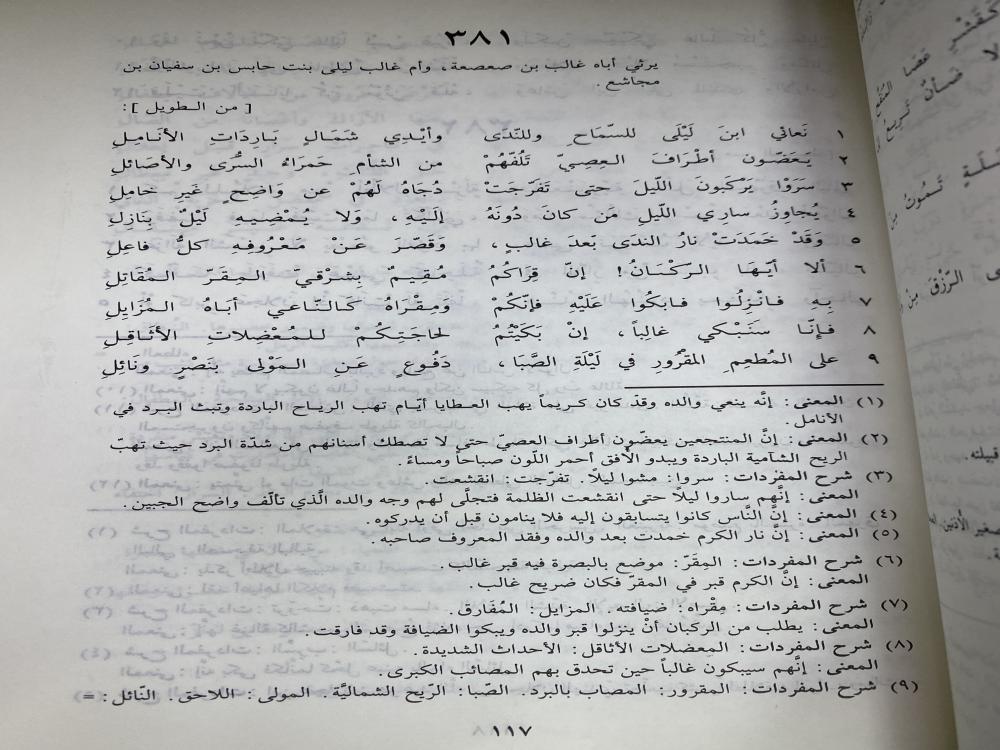 ٣٨١
يرثي أباه غالب بن صعصعة، وأم غالب ليلى بنت حابس بن سفيان بن
مجاشع.
[ من الطويل ]:
١ نَعائي ابنَ لَيْلَى للسّمَاحِ وللنّدَى وأيْدِي شَمَالٍ بَارِدَاتِ الأنَامِلِ
٢ يَعَضّون أطْرَافَ العِصِيِّ تَلُفّهُمْ من الشأمِ حَمرَاءُ السُّرَى والأصَائلِ
٣ سَرَوْا يَرْكبونَ اللّيلَ حتى تَفَرّجَتْ دُجَاهُ لَهُمْ عن وَاضحٍ غَيرِ خامِلِ
٤ يُجاوِزُ ساري اللّيلِ مَن كانَ دُونَهُ إلَيْهِ، وَلا يُمْضيهِ لَيْلٌ بِنَازِلِ
٥ وَقَدْ خَمَدَتْ نارُ الندَى بَعدَ غالبٍ، وَقَصّرَ عَنْ مَعْرُوفِهِ كلُّ فاعلِ
٦ ألا أيّها الرّكْبَانُ! إنّ قِرَاكُمُ مُقِيمٌ بِشرْقيّ المِقَرّ المُقَاتِلِ
٧ بِهِ فَانْزِلُوا فابكُوا عَلَيْهِ فإنّكُمْ وَمِقْرَاهُ كَالنّاعي أبَاهُ المُزَايِلِ
٨ فإنّا سَنَبْكي غالِباً، إنْ بَكَيْتُمُ لحاجَتِكُمْ للمُعْضِلاتِ الأثَاقِلِ
٩ على المُطعِمِ المَقْرُورِ في لَيْلَةِ الصَّبَا، دَفُوعٍ عَنِ المَوْلى بنَصْرٍ ونَائِلِ
(١) المعنى: إنّه ينعي والده وقدّ كان كريماً يهب العطايا أيّام تهب الرياح الباردة وتبث البرد في
الأنامل.
(٢) المعنى: إنَّ المنتجعين يعضّون أطراف العصيّ حتى لا تصطك أسنانهم من شدّة البرد حيث تهبّ
الريح الشآمية الباردة ويبدو الأفق أحمر اللّون صباحاً ومساءً.
(٣) شرح المفردات: سروا: مشوا ليلاً. تفرّجت: انقشعت.
المعنى: إنّهم ساروا ليلاً حتى انقشعت الظلمة فتجلَّى لهم وجه والده الَّذي تألّف واضح الجبين.
(٤) المعنى: إنَّ النَّاس كانوا يتسابقون إليه فلا ينامون قبل أن يدركوه.
(٥) المعنى: إنَّ نار الكرم خمدت بعد والده وفقد المعروف صاحبه.
(٦) شرح المفردات: المِقَرّ: موضع بالبصرة فيه قبر غالب.
المعنى: إنَّ الكرم قبر في المقرّ فكان ضريح غالب.
(٧) شرح المفردات: مِقْراه: ضيافته. المزايل: المُفَارق.
المعنى: يطلب من الركبان أنْ ينزلوا قبر والده ويبكوا الضيافة وقد فارقت.
(٨) شرح المفردات: المعضلات الأثاقل: الأحداث الشديدة.
المعنى: إنَّهم سيبكون غالباً حين تحدق بهم المصائب الكبرى.
(٩) شرح المفردات: المقرور: المصاب بالبرد. الصّبا: الرّيح الشماليَّة. المولى: اللاحق. النّائل: =
١١٧
تَمُوتُ
الرّزْقَ
قبيلته.